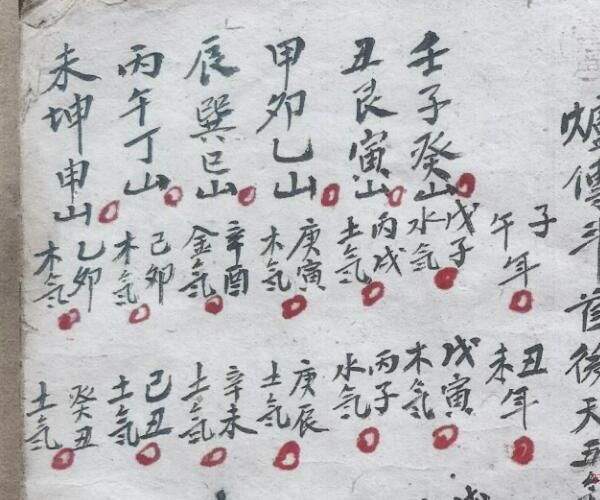 爐傳斗首後天五
壬子癸山
丑艮寅山
甲卯乙山
辰巽巳山
丙午丁山
未坤申山
子午年
戊子水氣
丙戌土氣
庚寅木氣
辛酉金氣
己卯木氣
乙卯木氣
丑未年
戊寅木氣
丙子水氣
庚辰土氣
辛未土氣
己丑土氣
癸丑土氣